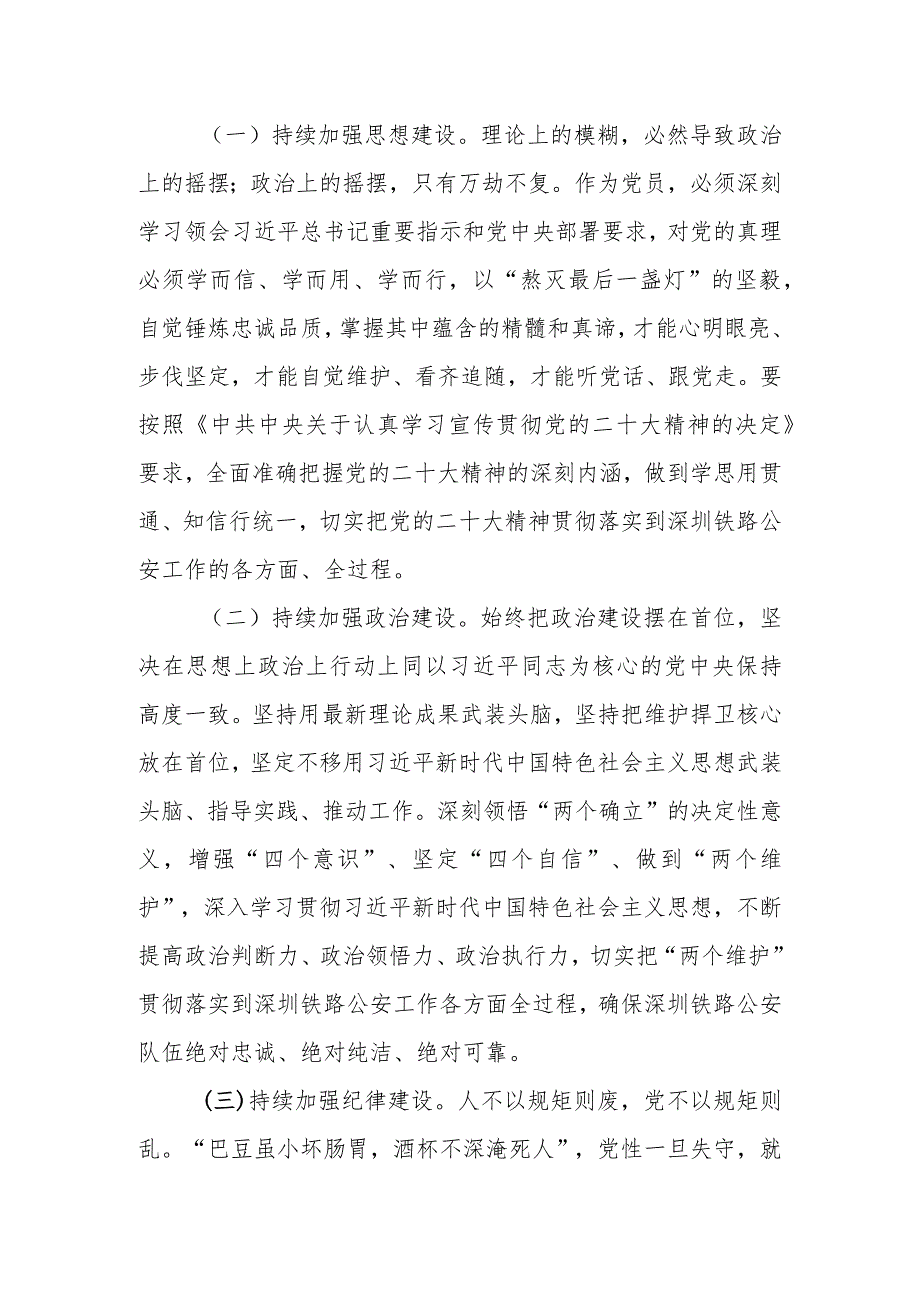 （一）持续加强思想建设。理论上的模糊，必然导致政治
上的摇摆；政治上的摇摆，只有万劫不复。作为党员，必须深刻
学习领会习近平总书记重要指示和党中央部署要求，对党的真理
必须学而信、学而用、学而行，以“熬灭最后一盏灯”的坚毅，
自觉锤炼忠诚品质，掌握其中蕴含的精髓和真谛，才能心明眼亮、
步伐坚定，才能自觉维护、看齐追随，才能听党话、跟党走。要
按照《中共中央关于认真学习宣传贯彻党的二十大精神的决定》
要求，全面准确把握党的二十大精神的深刻内涵，做到学思用贯
通、知信行统一，切实把党的二十大精神贯彻落实到深圳铁路公
安工作的各方面、全过程。
（二）持续加强政治建设。始终把政治建设摆在首位，坚
决在思想上政治上行动上同以习近平同志为核心的党中央保持
高度一致。坚持用最新理论成果武装头脑，坚持把维护捍卫核心
放在首位，坚定不移用习近平新时代中国特色社会主义思想武装
头脑、指导实践、推动工作。深刻领悟“两个确立”的决定性意
义，增强“四个意识”、坚定“四个自信”、做到“两个维
护”，深入学习贯彻习近平新时代中国特色社会主义思想，不断
提高政治判断力、政治领悟力、政治执行力，切实把“两个维护”
贯彻落实到深圳铁路公安工作各方面全过程，确保深圳铁路公安
队伍绝对忠诚、绝对纯洁、绝对可靠。
(三)持续加强纪律建设。人不以规矩则废，党不以规矩则
乱。“巴豆虽小坏肠胃，酒杯不深淹死人”，党性一旦失守，就